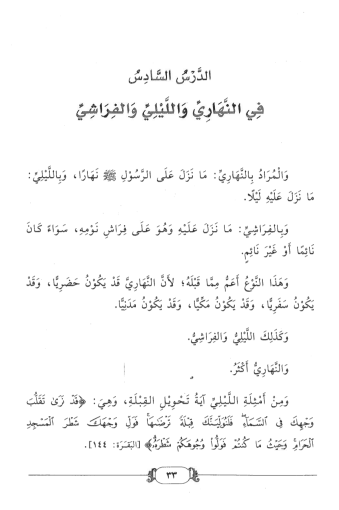 الدَّرْسُ السَّادِسُ
فِي النَّهَارِيِّ وَاللَّيْلِيِّ وَالفِرَاشِيِّ
وَالْمُرَادُ بِالنَّهَارِيِّ: مَا نَزَلَ عَلَى الرَّسُولِ ﷺ نَهَارًا، وَبِاللَّيْلِيِّ:
مَا نَزَلَ عَلَيْهِ لَيْلًا.
وَبِالفِرَاشِيِّ: مَا نَزَلَ عَلَيْهِ وَهُوَ عَلَى فِرَاشِ نَوْمِهِ، سَوَاءً كَانَ
نَائِمًا أَوْ غَيْرَ نَائِمٍ.
وَهَذَا النَّوْعُ أَعَمُّ مِمَّا قَبْلَهُ؛ لأَنَّ النَّهَارِيَّ قَدْ يَكُونُ حَضَرِيًّا، وَقَدْ
يَكُونُ سَفَرِيًّا، وَقَدْ يَكُونُ مَكِّيًّا، وَقَدْ يَكُونُ مَدَنِيًّا.
وَكَذَلِكَ اللَّيْلِيُّ وَالفِرَاشِيُّ.
وَالنَّهَارِيُّ أَكْثَرُ.
وَمِنْ أَمْثِلَةِ اللَّيْلِيِّ آيَةُ تَحْوِيلِ القِبْلَةِ، وَهِيَ: ﴿قَدْ نَرَىٰ تَقَلُّبَ
وَجْهِكَ فِي السَّمَآءِ ۖ فَلَنُوَلِّيَنَّكَ قِبْلَةً تَرْضَىٰهَا ۚ فَوَلِّ وَجْهَكَ شَطْرَ الْمَسْجِدِ
الْحَرَامِ ۚ وَحَيْثُ مَا كُنتُمْ فَوَلُّوا۟ وُجُوهَكُمْ شَطْرَهُ﴾ [البَقَرَة: ١٤٤].
٣٣